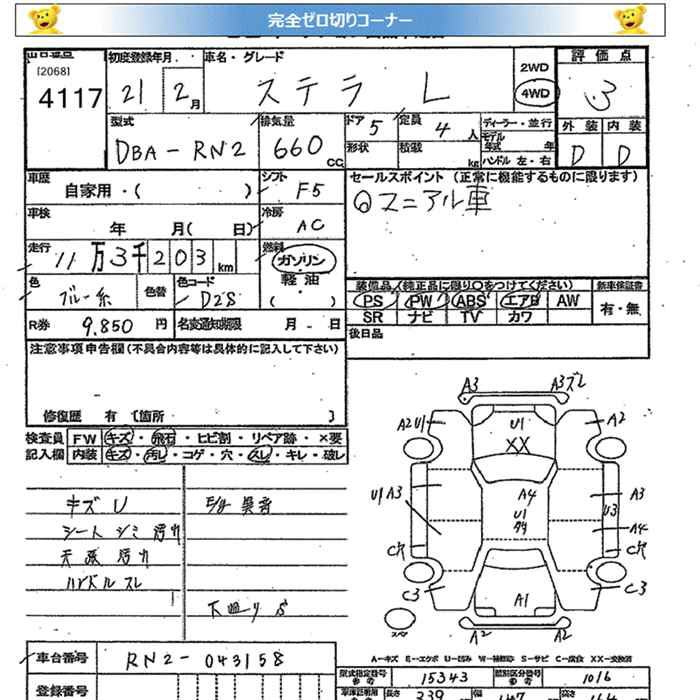 完全ゼロ切りコーナー
[2068]
4117
初度登録年月
21 2月
車名・グレード
ステラ L
2WD
4WD
評価点
3
型式
DBA-RN2
排気量
660 CC
ドア 5
定員 4 人
形状
積載 kg
ディーラー・並行
モデル年式 年
ハンドル 左・右
外装 内装
D D
車歴
自家用・( )
シフト F5
セールスポイント (正常に機能するものに限ります)
車検
年 月( 日)
冷房 AC
走行
11万3千203km
燃料
ガソリン
軽油
( )
色
ブルー系
色替
色コード
D28
装備品(純正品に限り○をつけてください)
新車保証書
PS PW ABS エアB AW
有・無
SR ナビ TV カワ
R券 9,850 円
名変通知期限 月 日
後日品
注意事項申告欄(不具合内容等は具体的に記入して下さい)
修復歴 有 [箇所 ]
検査員
記入欄
FW キズ・飛石・ヒビ割・リペア跡・×要
内装 キズ・汚レ・コゲ・穴・スレ・キレ・破レ
キズ U
E/g 異音
シート シミ 汚れ
天張 汚れ
ハンドル スレ
下廻り S
A3 A3ズレ
A2 U1 U1 A2
XX
U1 A3 A4 A3
U1 U3
A4
C穴 C穴
C3 C3
A1
A2 A2
A-キズ E-エクボ U-凹み W-補修跡 S-サビ C-腐食 XX-交換済
車台番号 RN2-043158
型式指定番号 15343
類別区分番号 1016
登録番号
長さ 339